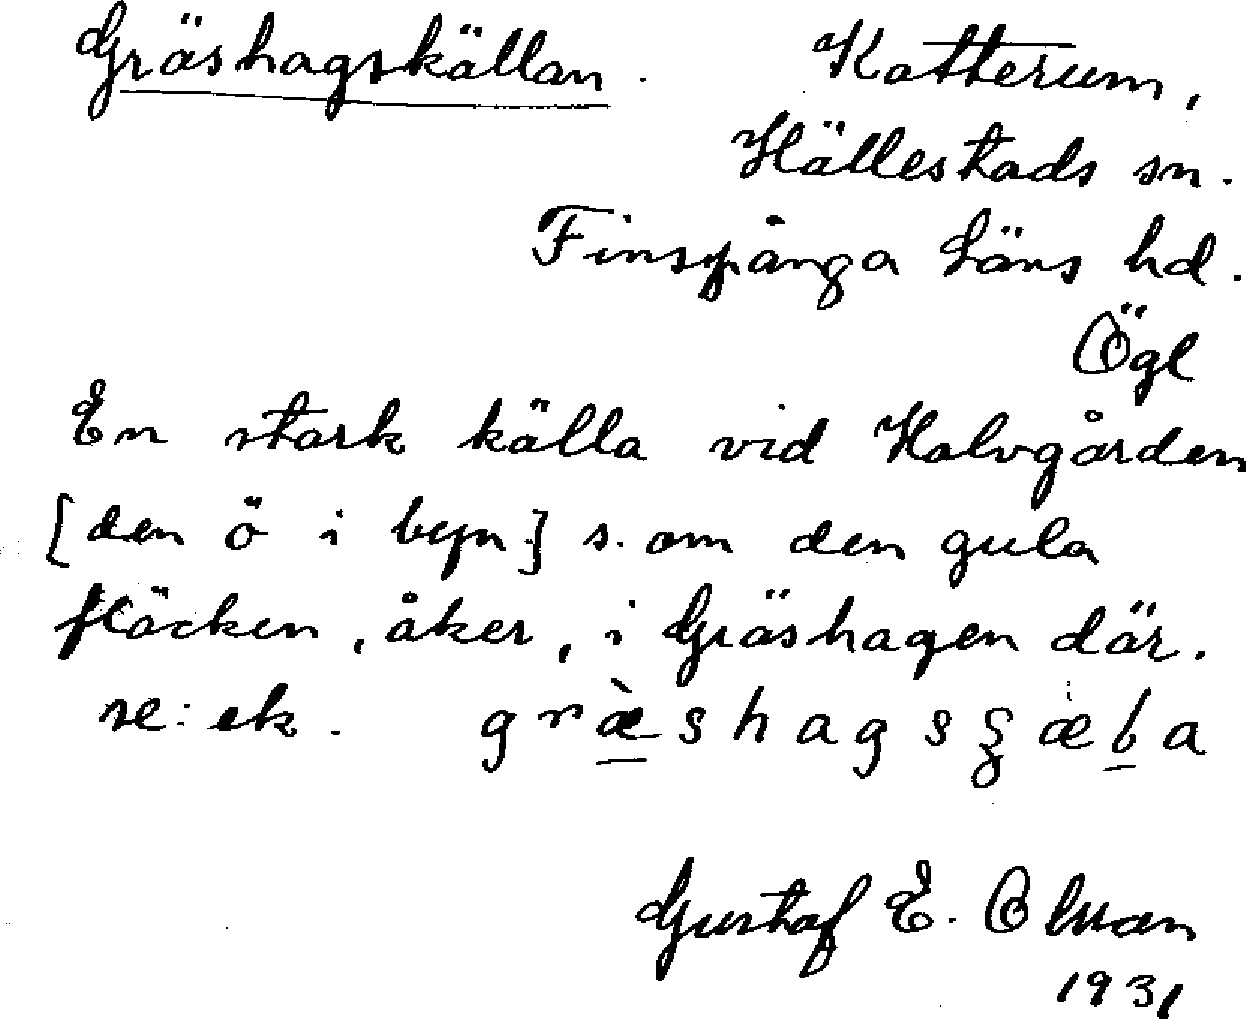 Gräshagskällan. Katterum,
Hällestads sn.
Finspånga läns hd.
Ögl
En stark källa vid Halvgården
[den ö i byn] s. om den gula
fläcken, åker, i Gräshagen där.
se: ek. græ̀shagsʂæba
Gustaf E. Olsson
1931